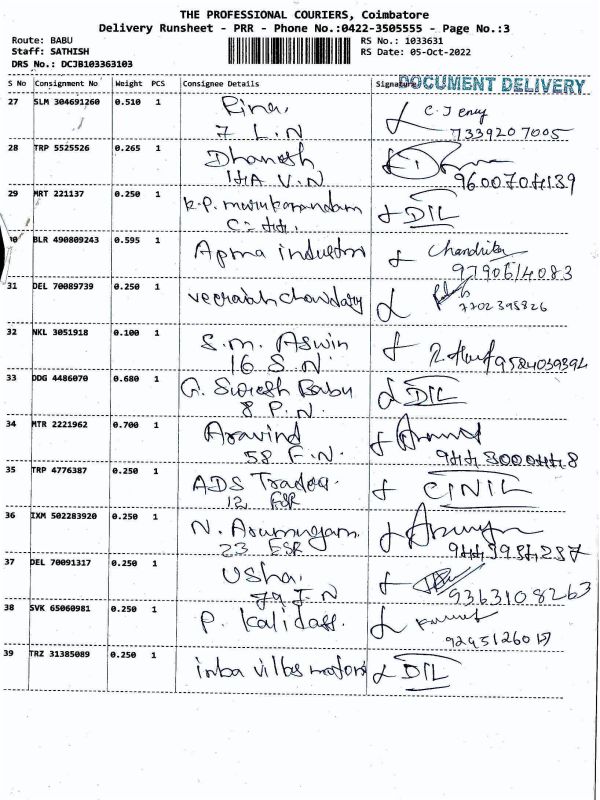 THE PROFESSIONAL COURIERS, Coimbatore
Delivery Runsheet - PRR - Phone No.:0422-3505555 - Page No.:3
Route: BABU
RS No.: 1033631
Staff: SATHISH
RS Date: 05-Oct-2022
DRS No.: DCJB103363103
DOCUMENT DELIVERY
S No Consignment No Weight PCS Consignee Details Signature
27 SLM 304691260 0.510 1 Rina, C.Jeny
7 L.N 7339207005
28 TRP 5525526 0.265 1 Dhanesh
V.N
29 MRT 221137 0.250 1 K.P. DIL
30 BLR 490809243 0.595 1 Apma Chandrika
9790614083
31 DEL 70089739 0.250 1
7702395826
32 NKL 3051918 0.100 1 S.M. Aswin
16 S.N.
33 DDG 4486070 0.680 1 G. Suresh Babu DIL
8 P.N.
34 MTR 2221962 0.700 1 Aravind
58 F.N.
35 TRP 4776387 0.250 1 ADS Traders. CINIL
12 ESR
36 IXM 502283920 0.250 1 N. Arumugam.
23 ESR
37 DEL 70091317 0.250 1 Usha,
79 F.N 9363108263
38 SVK 65060981 0.250 1 P. Kalidass.
39 TRZ 31385089 0.250 1 inba vilas motors DIL